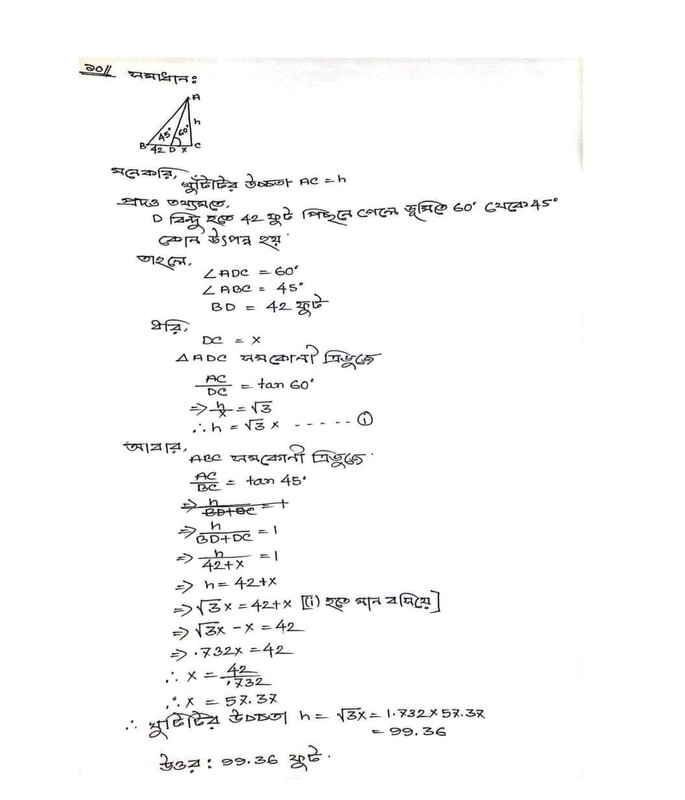 ১০// সমাধান:
A
45° 60° h
B 42 D x C
মনেকরি, খুঁটিটির উচ্চতা AC = h
প্রদত্ত তথ্যমতে,
D বিন্দু হতে 42 ফুট পিছনে গেলে ভূমিতে 60° থেকে 45°
কোন উৎপন্ন হয়
তাহলে,
∠ADC = 60°
∠ABC = 45°
BD = 42 ফুট
ধরি,
DC = x
△ADC সমকোনী ত্রিভুজে
AC/DC = tan 60°
⇒ h/x = √3
∴ h = √3 x ------ (i)
আবার, ABC সমকোনী ত্রিভুজে
AC/BC = tan 45°
⇒ h/(BD+DC) = 1
⇒ h/(42+x) = 1
⇒ h = 42+x
⇒ √3 x = 42+x [(i) হতে মান বসিয়ে]
⇒ √3x - x = 42
⇒ .732x = 42
∴ x = 42/.732
∴ x = 57.37
∴ খুটিটির উচ্চতা h = √3x = 1.732 x 57.37
= 99.36
উত্তর: 99.36 ফুট.